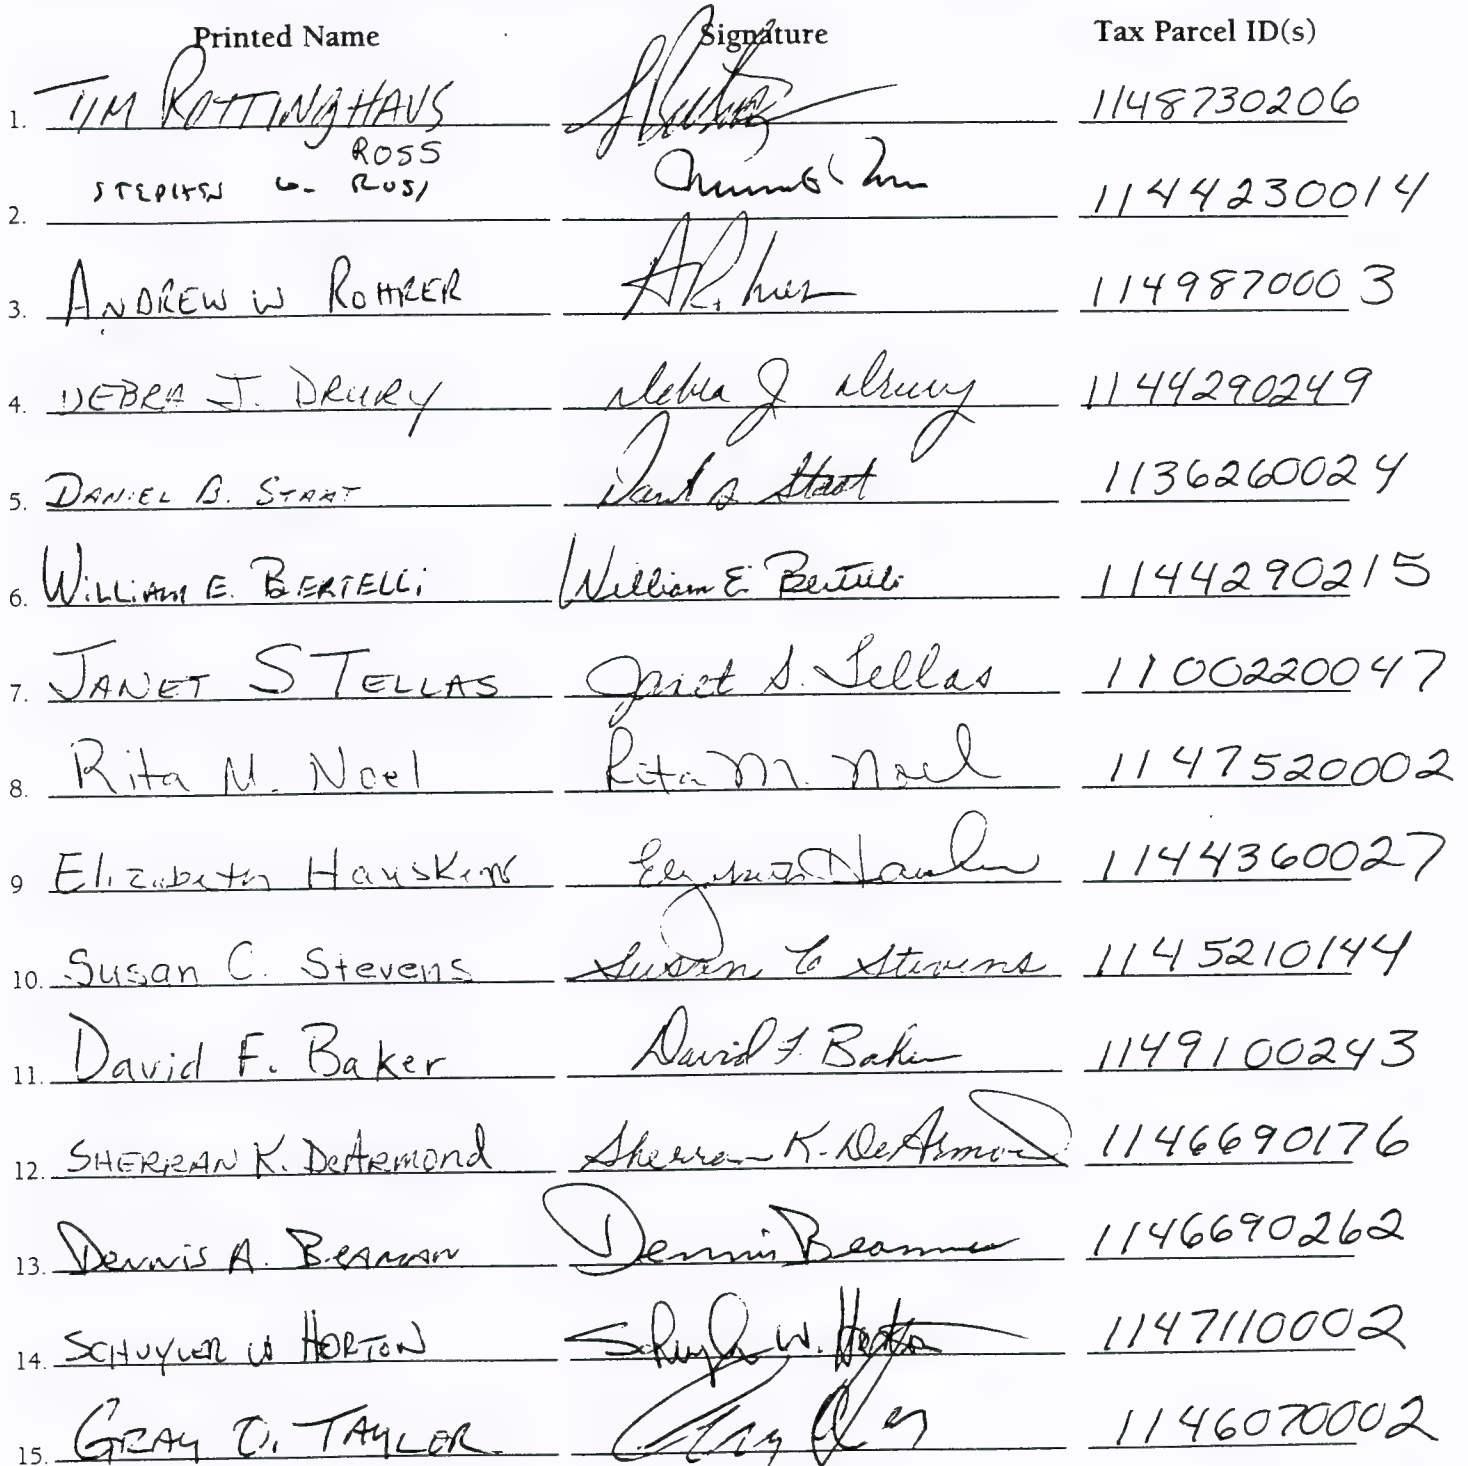 Printed Name Signature Tax Parcel ID(s)
1. TIM ROTTINGHAUS 1148730206
ROSS
2. STEPHEN G. ROSS 1144230014
3. ANDREW W ROHRER 1149870003
4. DEBRA J. DRURY Debra J Drury 1144290249
5. DANIEL B. STAAT Daniel B Staat 1136260024
6. WILLIAM E. BERTELLI William E. Bertelli 1144290215
7. JANET S TELLAS Janet S. Tellas 1100220047
8. Rita M. Noel Rita M. Noel 1147520002
9 Elizabeth Hausken 1144360027
10. Susan C. Stevens Susan C Stevens 1145210144
11. David F. Baker David F. Baker 1149100243
12. SHERRAN K. DeARMOND Sherran K. DeArmond 1146690176
13. DENNIS A. BEAMAN Dennis Beaman 1146690262
14. SCHUYLER W HORTON Schuyler W. Horton 1147110002
15. GRAY O. TAYLOR 1146070002